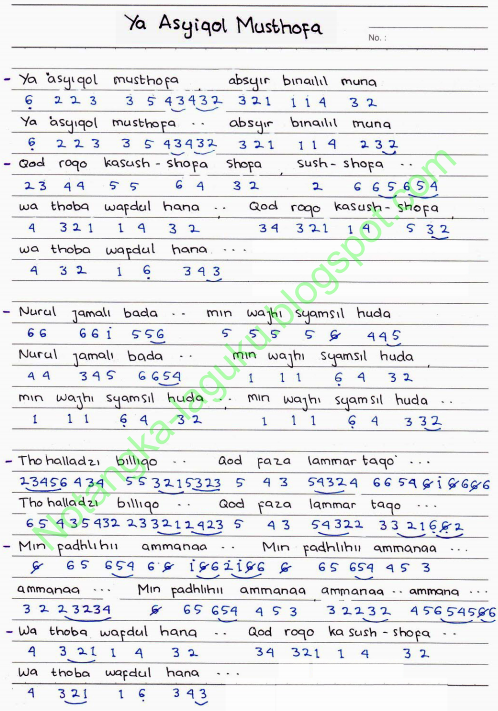 Ya Asyiqol Musthofa
No. :
- Ya asyiqol musthofa, absyir binailil muna
6̣ 2 2 3 3 5 4 3 4 3 2 3 2 1 1 1 4 3 2
Ya asyiqol musthofa .. absyir binailil muna
6̣ 2 2 3 3 5 4 3 4 3 2 3 2 1 1 1 4 2 3 2
- Qod roqo kasush-shofa shofa, sush-shofa ..
2 3 4 4 5 5 6 4 3 2 2 6 6 5 6 5 4
wa thoba wafdul hana .. Qod roqo kasush-shofa,
4 3 2 1 1 4 3 2 3 4 3 2 1 1 4 5 3 2
wa thoba wafdul hana ...
4 3 2 1 6̣ 3 4 3
- Nurul jamali bada .. min wajhi syamsil huda
6 6 6 6 i 5 5 6 5 5 5 5 6 4 4 5
Nurul jamali bada .. min wajhi syamsil huda,
4 4 3 4 5 6 6 5 4 1 1 1 6̣ 4 3 2
min wajhi syamsil huda .. min wajhi syamsil huda ..
1 1 1 6̣ 4 3 2 1 1 1 6 4 3 3 2
- Tho halladzi billiqo .. Qod faza lammar taqo ...
2 3 4 5 6 4 3 4 5 5 3 2 1 5 3 2 3 5 4 3 5 4 3 2 4 6 6 5 4
Tho halladzi billiqo .. Qod faza lammar taqo ...
6 5 4 3 5 4 3 2 2 3 3 2 1 2 4 2 3 5 4 3 5 4 3 2 2 3 3 2 1
- Min fadhlihii ammanaa .. Min fadhlihii ammanaa ...
6 6 5 6 5 4 6 6 5 6 5 4 4 5 3
ammanaa ... Min fadhlihii ammanaa, ammanaa .. ammana ...
3 2 2 3 2 3 4 6 6 5 6 5 4 4 5 3 3 2 2 3 2 4 5 6 5 4 5
- Wa thoba wafdul hana .. Qod roqo ka sush-shofa ..
4 3 2 1 1 4 3 2 3 4 3 2 1 1 4 3 2
Wa thoba wafdul hana ...
4 3 2 1 1 6̣ 3 4 3
Notangka-laguku.blogspot.com